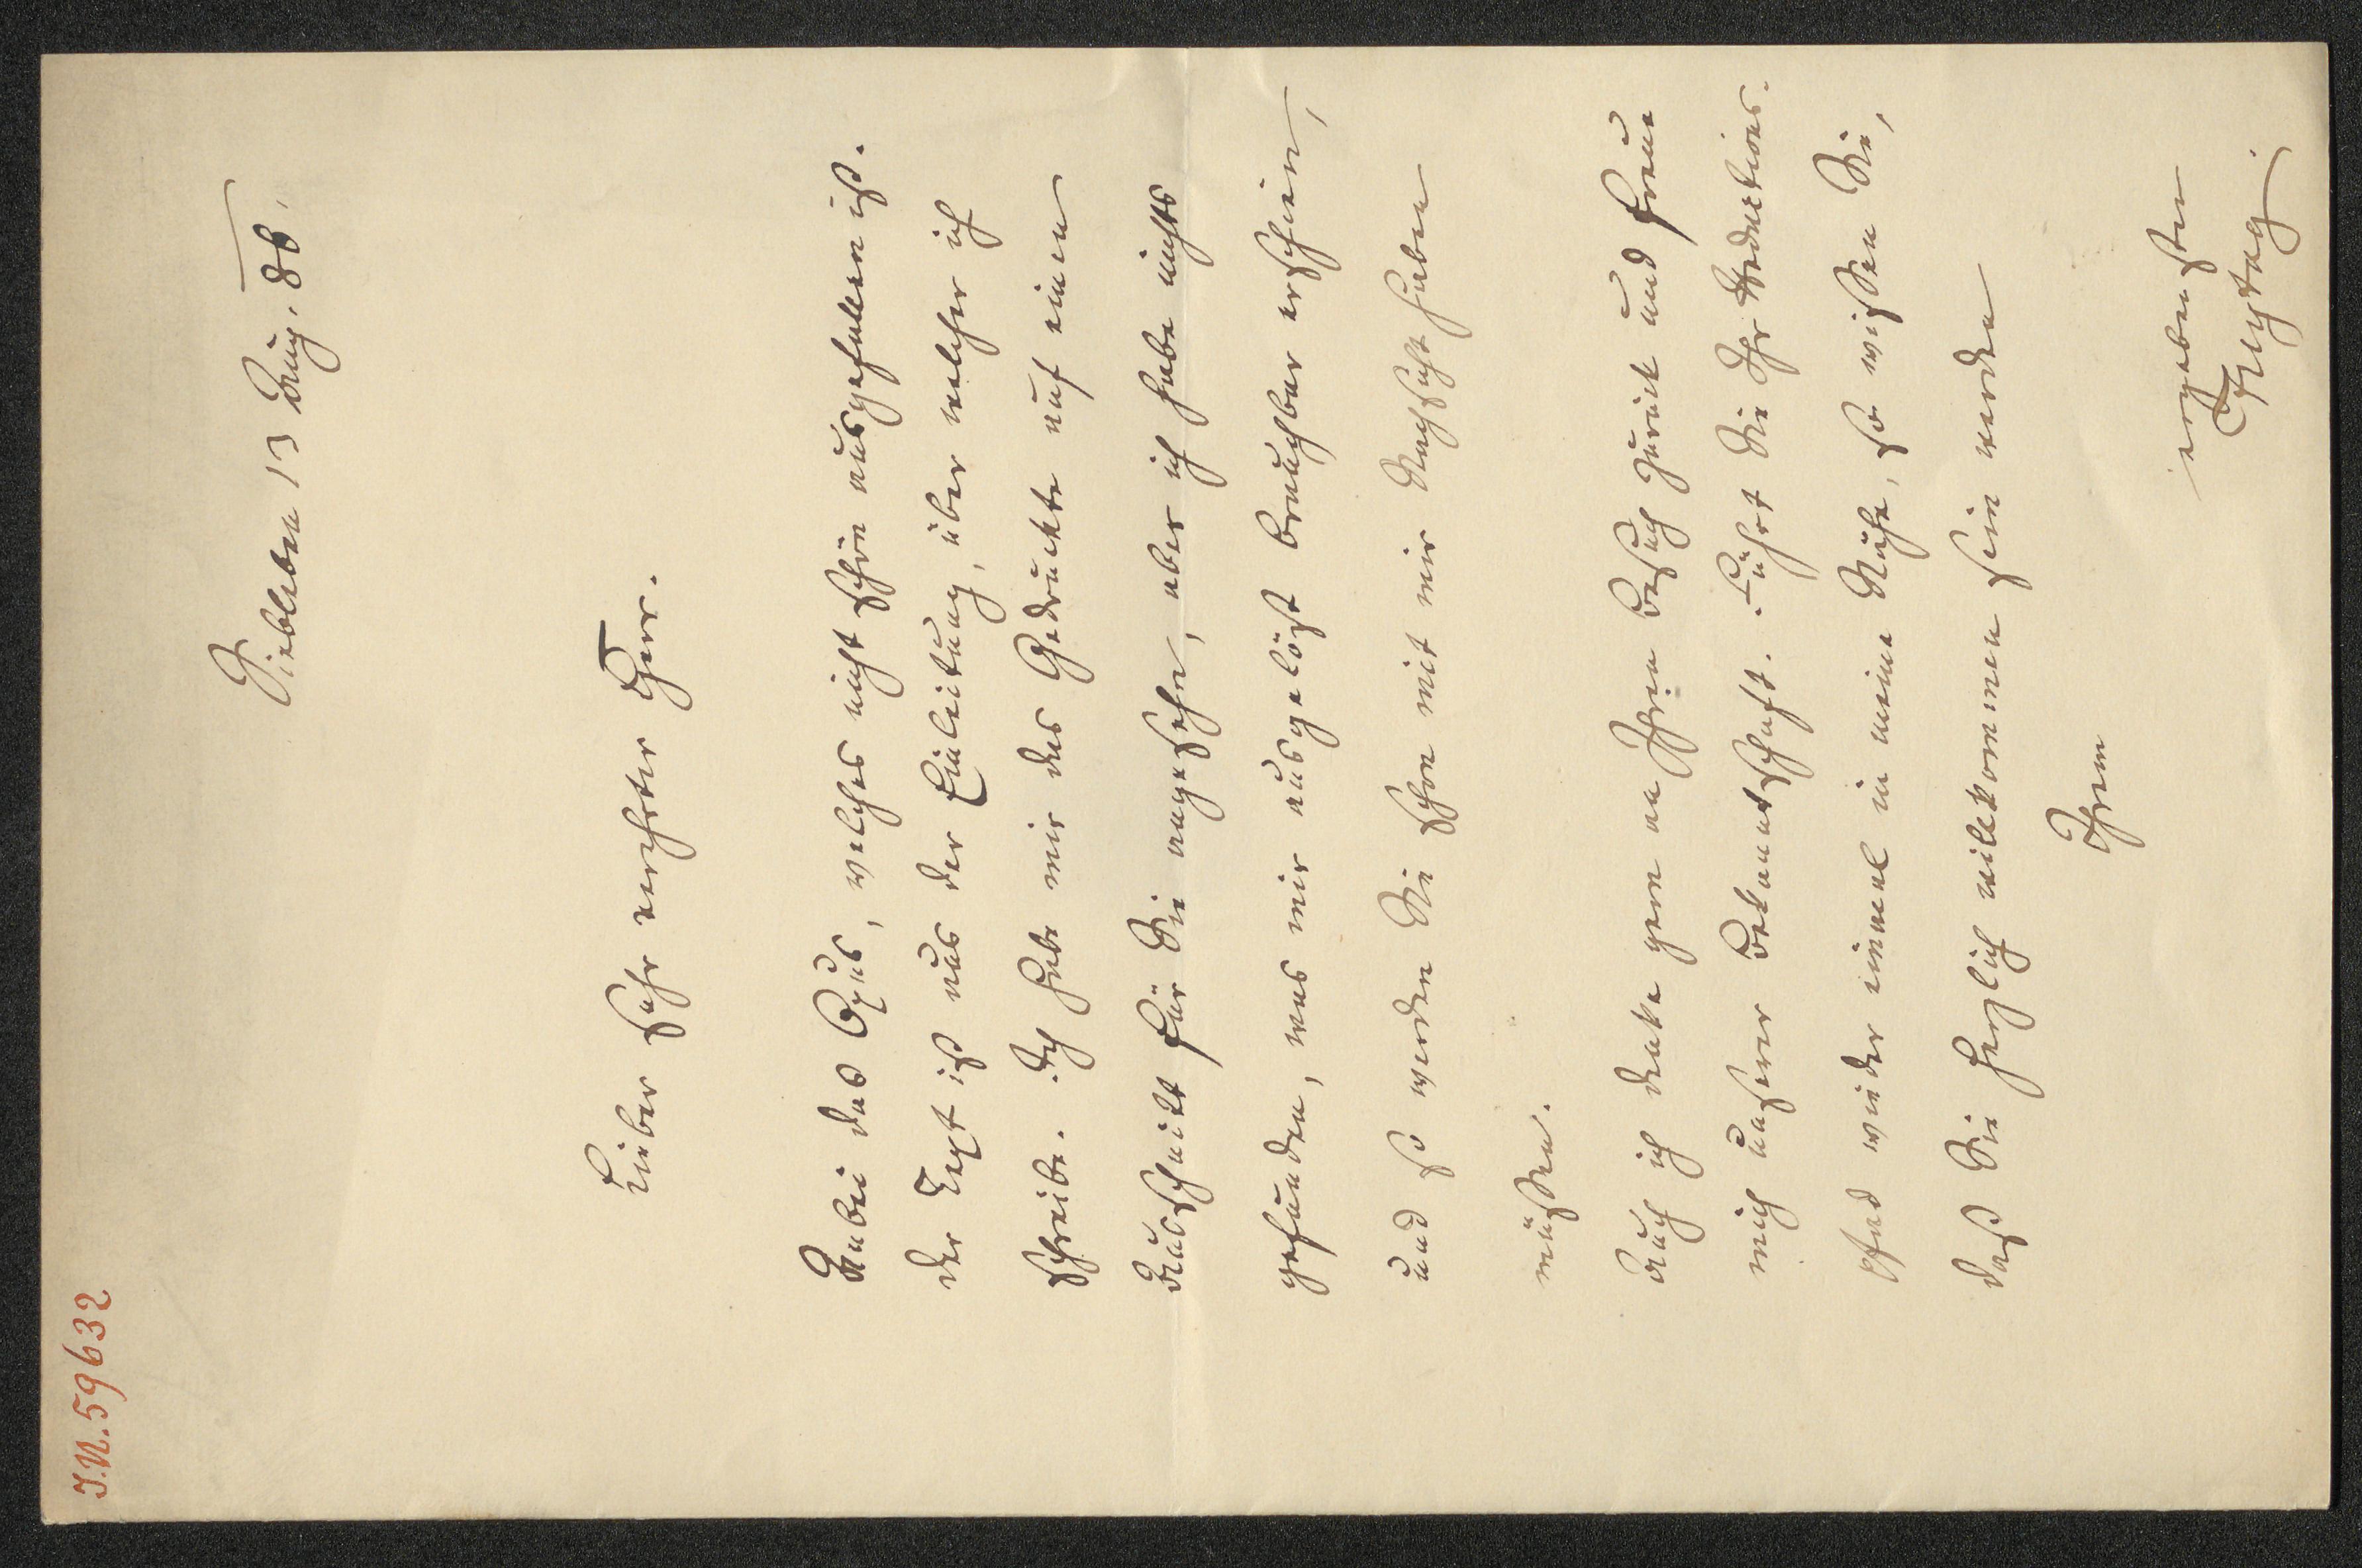 I.N. 59632
Siebleben 13 Aug. 86.
Lieber sehr verehrter Herr.
Anbei das Opus, welches nicht schön ausgefallen ist.
Der Text ist aus der Einleitung, über welcher ich
schreibe. Ich habe mir das Gedruckte auf einen
Ausschnitt für Sie angesehen, aber ich habe nichts
gefunden, was mir ausgelöst brauchbar erschien,
und so werden Sie schon mit mir Nachsicht haben
müssen.
Auch ich denke gern an Ihren Besuch zurück und freue
mich unserer Bekanntschaft. Führt Sie Ihr Redactions-
pferd wieder einmal in meine Nähe, so wissen Sie,
daß Sie herzlich willkommen sein werden
Ihrem
ergebensten
Freytag.